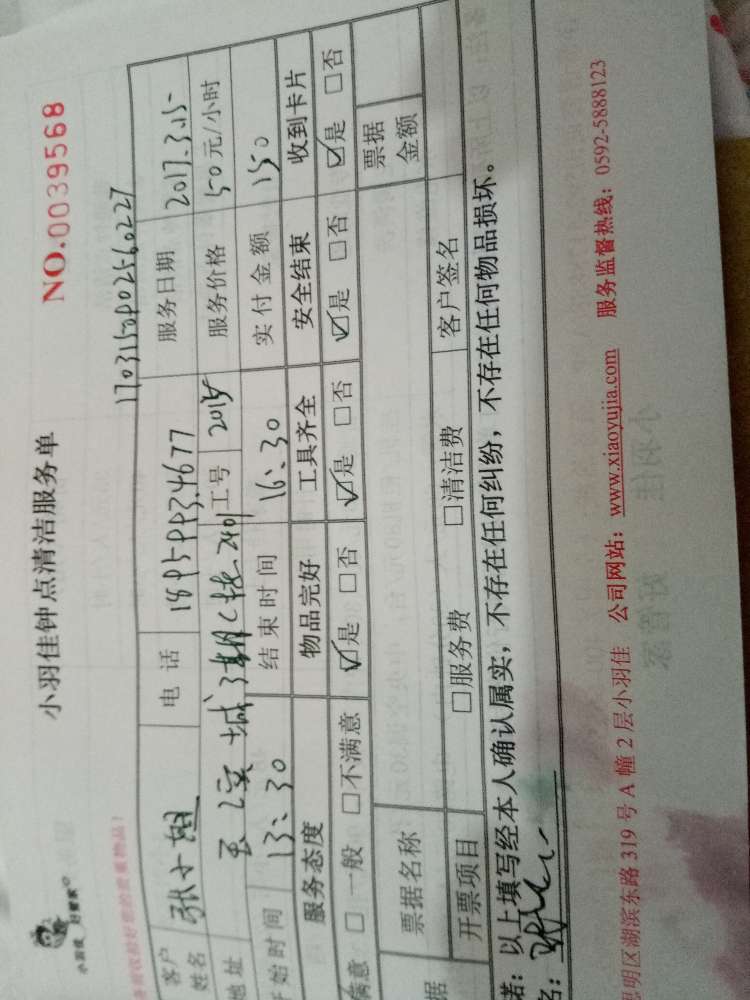 小羽佳 好管家
小羽佳钟点清洁服务单 NO.0039568
客户姓名 张小姐 电话 服务日期 2017.3.15
地址 工号 2015 服务价格 50元/小时
开始时间 13:30 结束时间 16:30 实付金额 150
服务态度 物品完好 工具齐全 安全结束 收到卡片
满意 □一般 □不满意 ☑是 □否 ☑是 □否 ☑是 □否 ☑是 □否
票据名称 票据金额
据 开票项目 □服务费 □清洁费 客户签名
诺：以上填写经本人确认属实，不存在任何纠纷，不存在任何物品损坏。
名：
思明区湖滨东路 319 号 A 幢 2 层小羽佳 公司网站：www.xiaoyujia.com 服务监督热线：0592-5888123